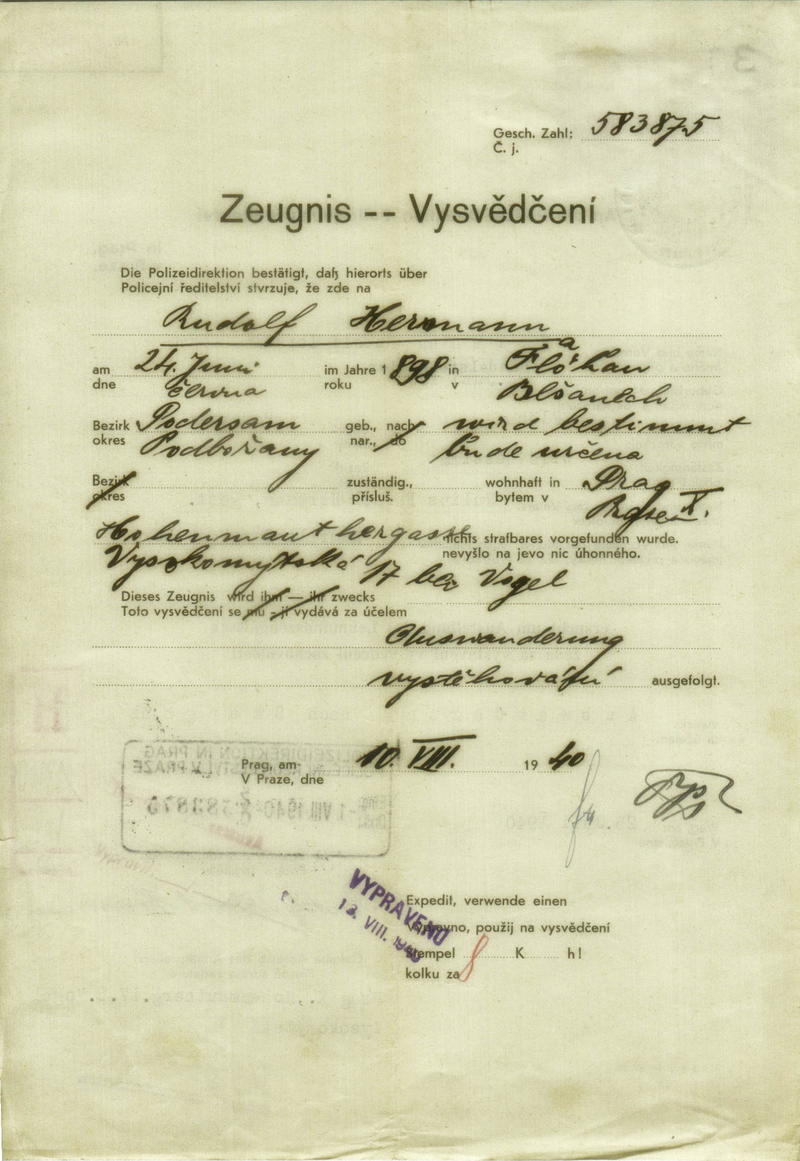 Gesch. Zahl: 583875
Č. j.
Zeugnis -- Vysvědčení
Die Polizeidirektion bestätigt, daß hierorts über
Policejní ředitelství stvrzuje, že zde na
Rudolf Herrmann
am 24. Juni im Jahre 1898 in Flöhau
dne června roku v Blšanech
Bezirk Podersam geb., nach wird bestimmt
okres Podbořany nar., do bude určena
Bezirk zuständig., wohnhaft in Prag
okres přísluš. bytem v Praze X.
Hohenmauthergasse nichts strafbares vorgefunden wurde.
nevyšlo na jevo nic úhonného.
Vysokomýtská 17 bei Vogel
Dieses Zeugnis wird ihm — ihr zwecks
Toto vysvědčení se mu - jí vydává za účelem
Auswanderung
vystěhování ausgefolgt.
Prag, am 10. VIII. 1940
V Praze, dne
VYPRAVENO
Expedit, verwende einen
Výpravno, použij na vysvědčení
Stempel 8 K h!
kolku za